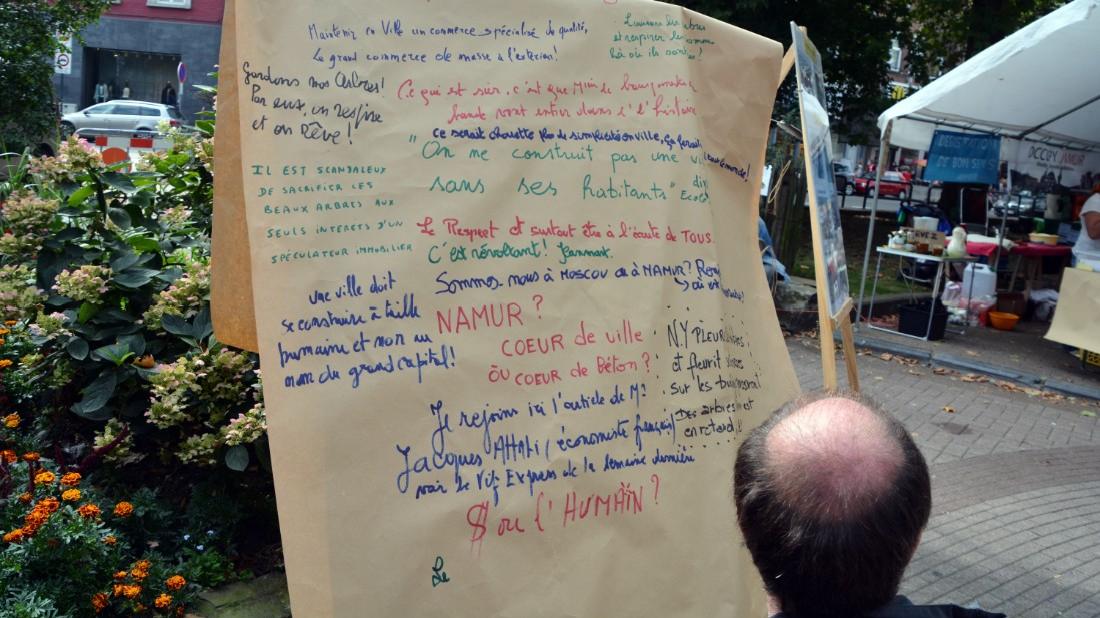 Maintenir en Ville un commerce spécialisé de qualité,
Le grand commerce de masse à l'extérieur!
et respirer les
là où ils sont!
Gardons nos Arbres!
Par eux, on respire
et on Rêve!
Ce qui est sûr, c'est que
vont entrer dans l'histoire
ce serait chouette
"On ne construit pas une
sans ses habitants"
IL EST SCANDALEUX
DE SACRIFIER LES
BEAUX ARBRES AUX
SEULS INTERETS D'UN
SPÉCULATEUR IMMOBILIER
Le Respect et surtout être à l'écoute de TOUS.
C'est révoltant!
Sommes-nous à MOSCOU ou à NAMUR?
une ville doit
se construire à taille
humaine et non au
nom du grand capital!
NAMUR?
COEUR de ville
OU COEUR de Béton?
N.Y PLEUR
et fleurit
sur les
Des arbres
en retard!
Je rejoins ici l'article de Mr
Jacques ATTALI (économiste français)
voir le Vif Express de la semaine dernière
$ ou l'HUMAÏN?
Le
DEGUSTATION
DE BON SENS
OCCUPY NAMUR